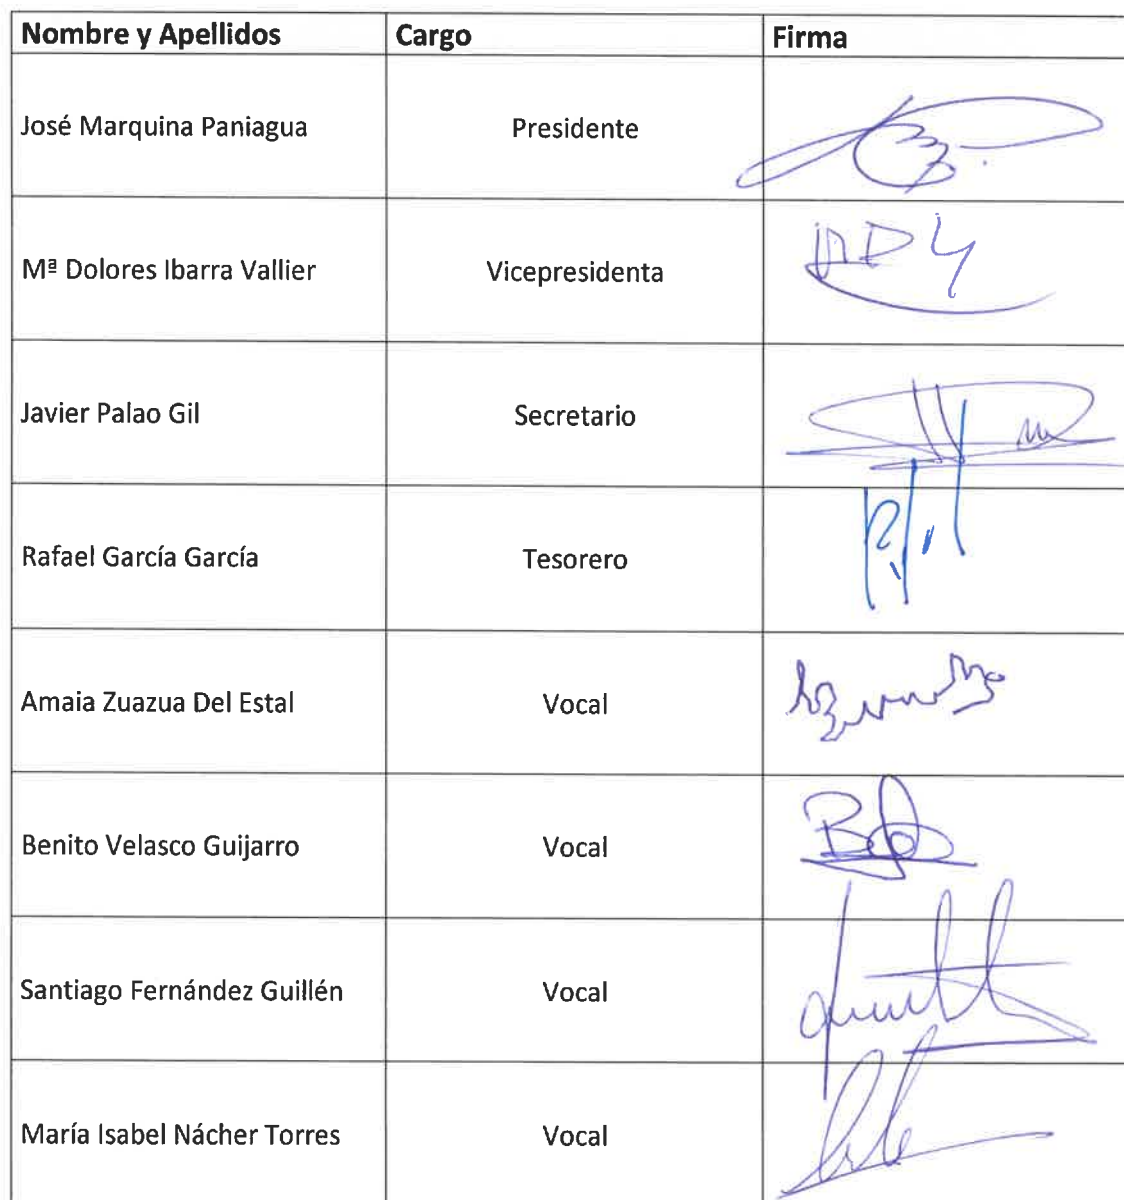 Nombre y Apellidos Cargo Firma
José Marquina Paniagua Presidente
Mª Dolores Ibarra Vallier Vicepresidenta
Javier Palao Gil Secretario
Rafael García García Tesorero
Amaia Zuazua Del Estal Vocal
Benito Velasco Guijarro Vocal
Santiago Fernández Guillén Vocal
María Isabel Nácher Torres Vocal